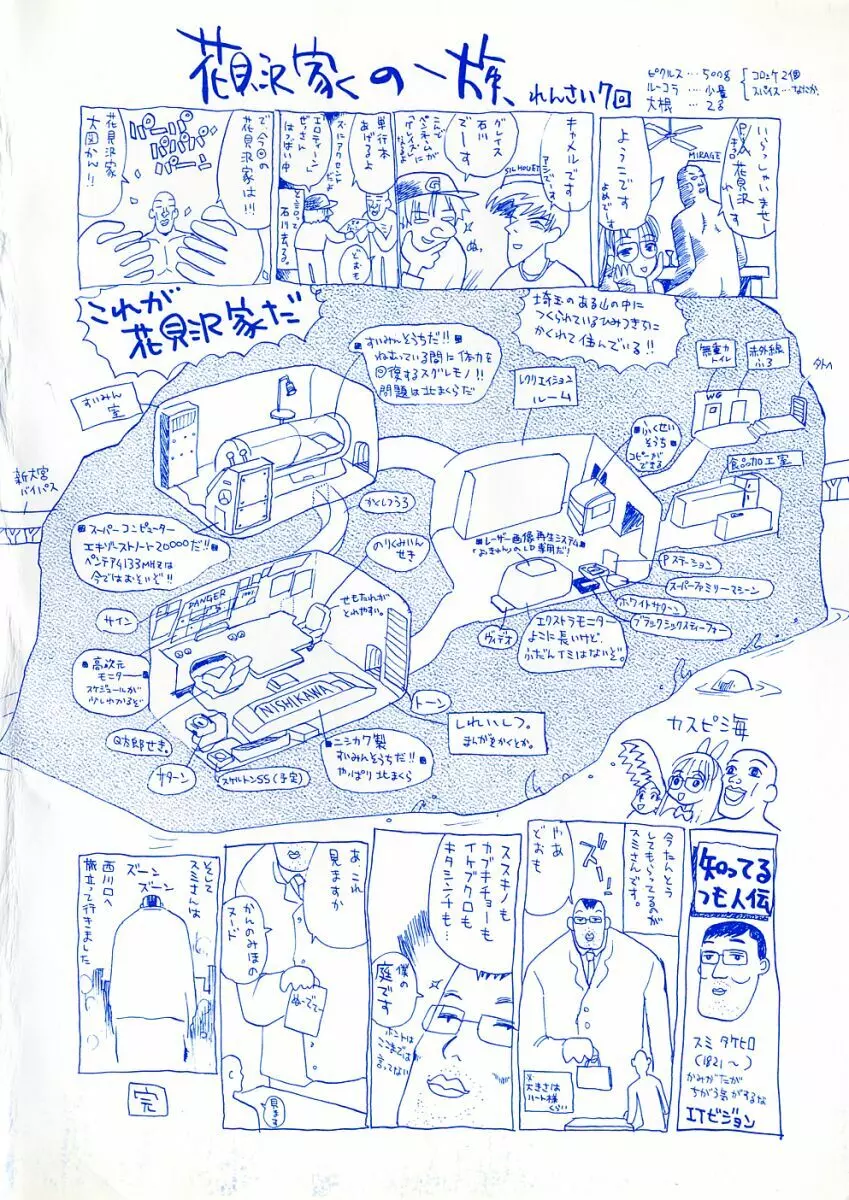 花見沢家の一族、れんさい7回
ピクルス…500g
ルーコラ…少量
大根…2g
コロッケ2個
スパイス…なたか、
いらっしゃいませー
花見沢
れーす
MIRAGE
ようこです
よめでーす
キャメルでーす
アシでーす
SILHOUET
グレイス
石川
でーす
こんど
ペンネームが
「グレイズ」に
なるよ
G
ぬ、
単行本
あげるよ
ストアクセント
だよ
エロティーン
ぜっさん
はつばい中
と言って
石川去る。
どおも
で、今回の
花見沢家は!!
パーパパパパパパ
花見沢家
大図かん!!
これが
花見沢家だ
埼玉のある山の中に
つくられているひみつきちに
かくれて住んでいる!!
すいみん
室
■すいみんそうちだ!!■
ねむっている間に体力を
回復するスグレモノ!!
問題は北まくらだ
レクリエイション
ルーム
無重力
トイレ
赤外線
ふろ
WG
外へ
■ふくせい
そうち■
コピーが
できる
食品加工室
新大宮
バイパス
■スーパーコンピューター
エキゾーストノート20000だ!!■
ペンテアム133MHzは
今ではおそいぞ!!
かとしつうろ
のりくみいん
せき
■レーザー画像再生システム■
「おきゃん」のLD専用だ!
Pステーション
スーパーファミリーマシーン
ホワイトサターン
ブラックシックスティーフォー
ヴィデオ
■エクストラモニター■
よこに長いけど、
ふだんイミはないぞ。
サイン
DANGER
せもたれが
とれやすい。
■高次元
モニター■
スケジュールが
少しわかるぞ
NISHIKAWA
トーン
しれいしつ。
まんがをかくとか。
Q太郎せき。
サターン
スケルトンSS(予定)
■ニシカワ製
すいみんそうちだ!!■
やっぱり北まくら
カスピ海
知ってる
つも人伝
スミ タケヒロ
(1821〜)
かみがたが
ちがう気がするな
ITビジョン
今たんとう
してもらってるのが
スミさんです。
ズーン
やあ
どおも
※
大きさは
ハート様
くらい
ススキノも
カブキチョーも
イケブクロも
キタシンチも…
僕の
庭です
ホントは
ここまでは
言ってない
あ、これ
見ますか
かんのみほの
ヌード
ぬーどでー
見ます
そして
スミさんは
ズーン
ズーン
西川口へ
旅立って行きました
完